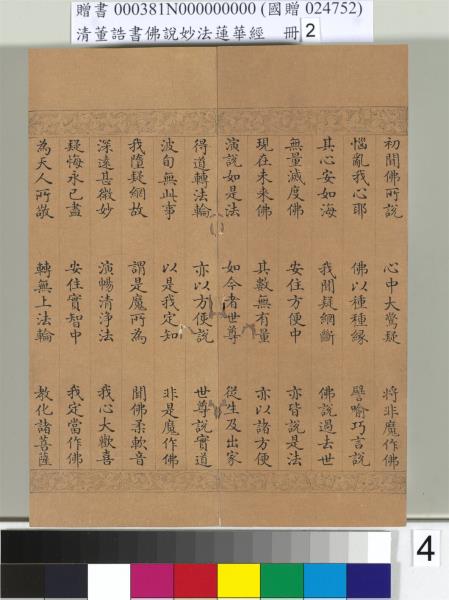 贈書 000381N000000000 (國贈 024752)
清董誥書佛說妙法蓮華經 冊 2
初聞佛所說 心中大驚疑 將非魔作佛
惱亂我心耶 佛以種種緣 譬喻巧言說
其心安如海 我聞疑網斷 佛說過去世
無量滅度佛 安住方便中 亦皆說是法
現在未來佛 其數無有量 亦以諸方便
演說如是法 如今者世尊 從生及出家
得道轉法輪 亦以方便說 世尊說實道
波旬無此事 以是我定知 非是魔作佛
我墮疑網故 謂是魔所為 聞佛柔軟音
深遠甚微妙 演暢清淨法 我心大歡喜
疑悔永已盡 安住實智中 我定當作佛
為天人所敬 轉無上法輪 教化諸菩薩
4